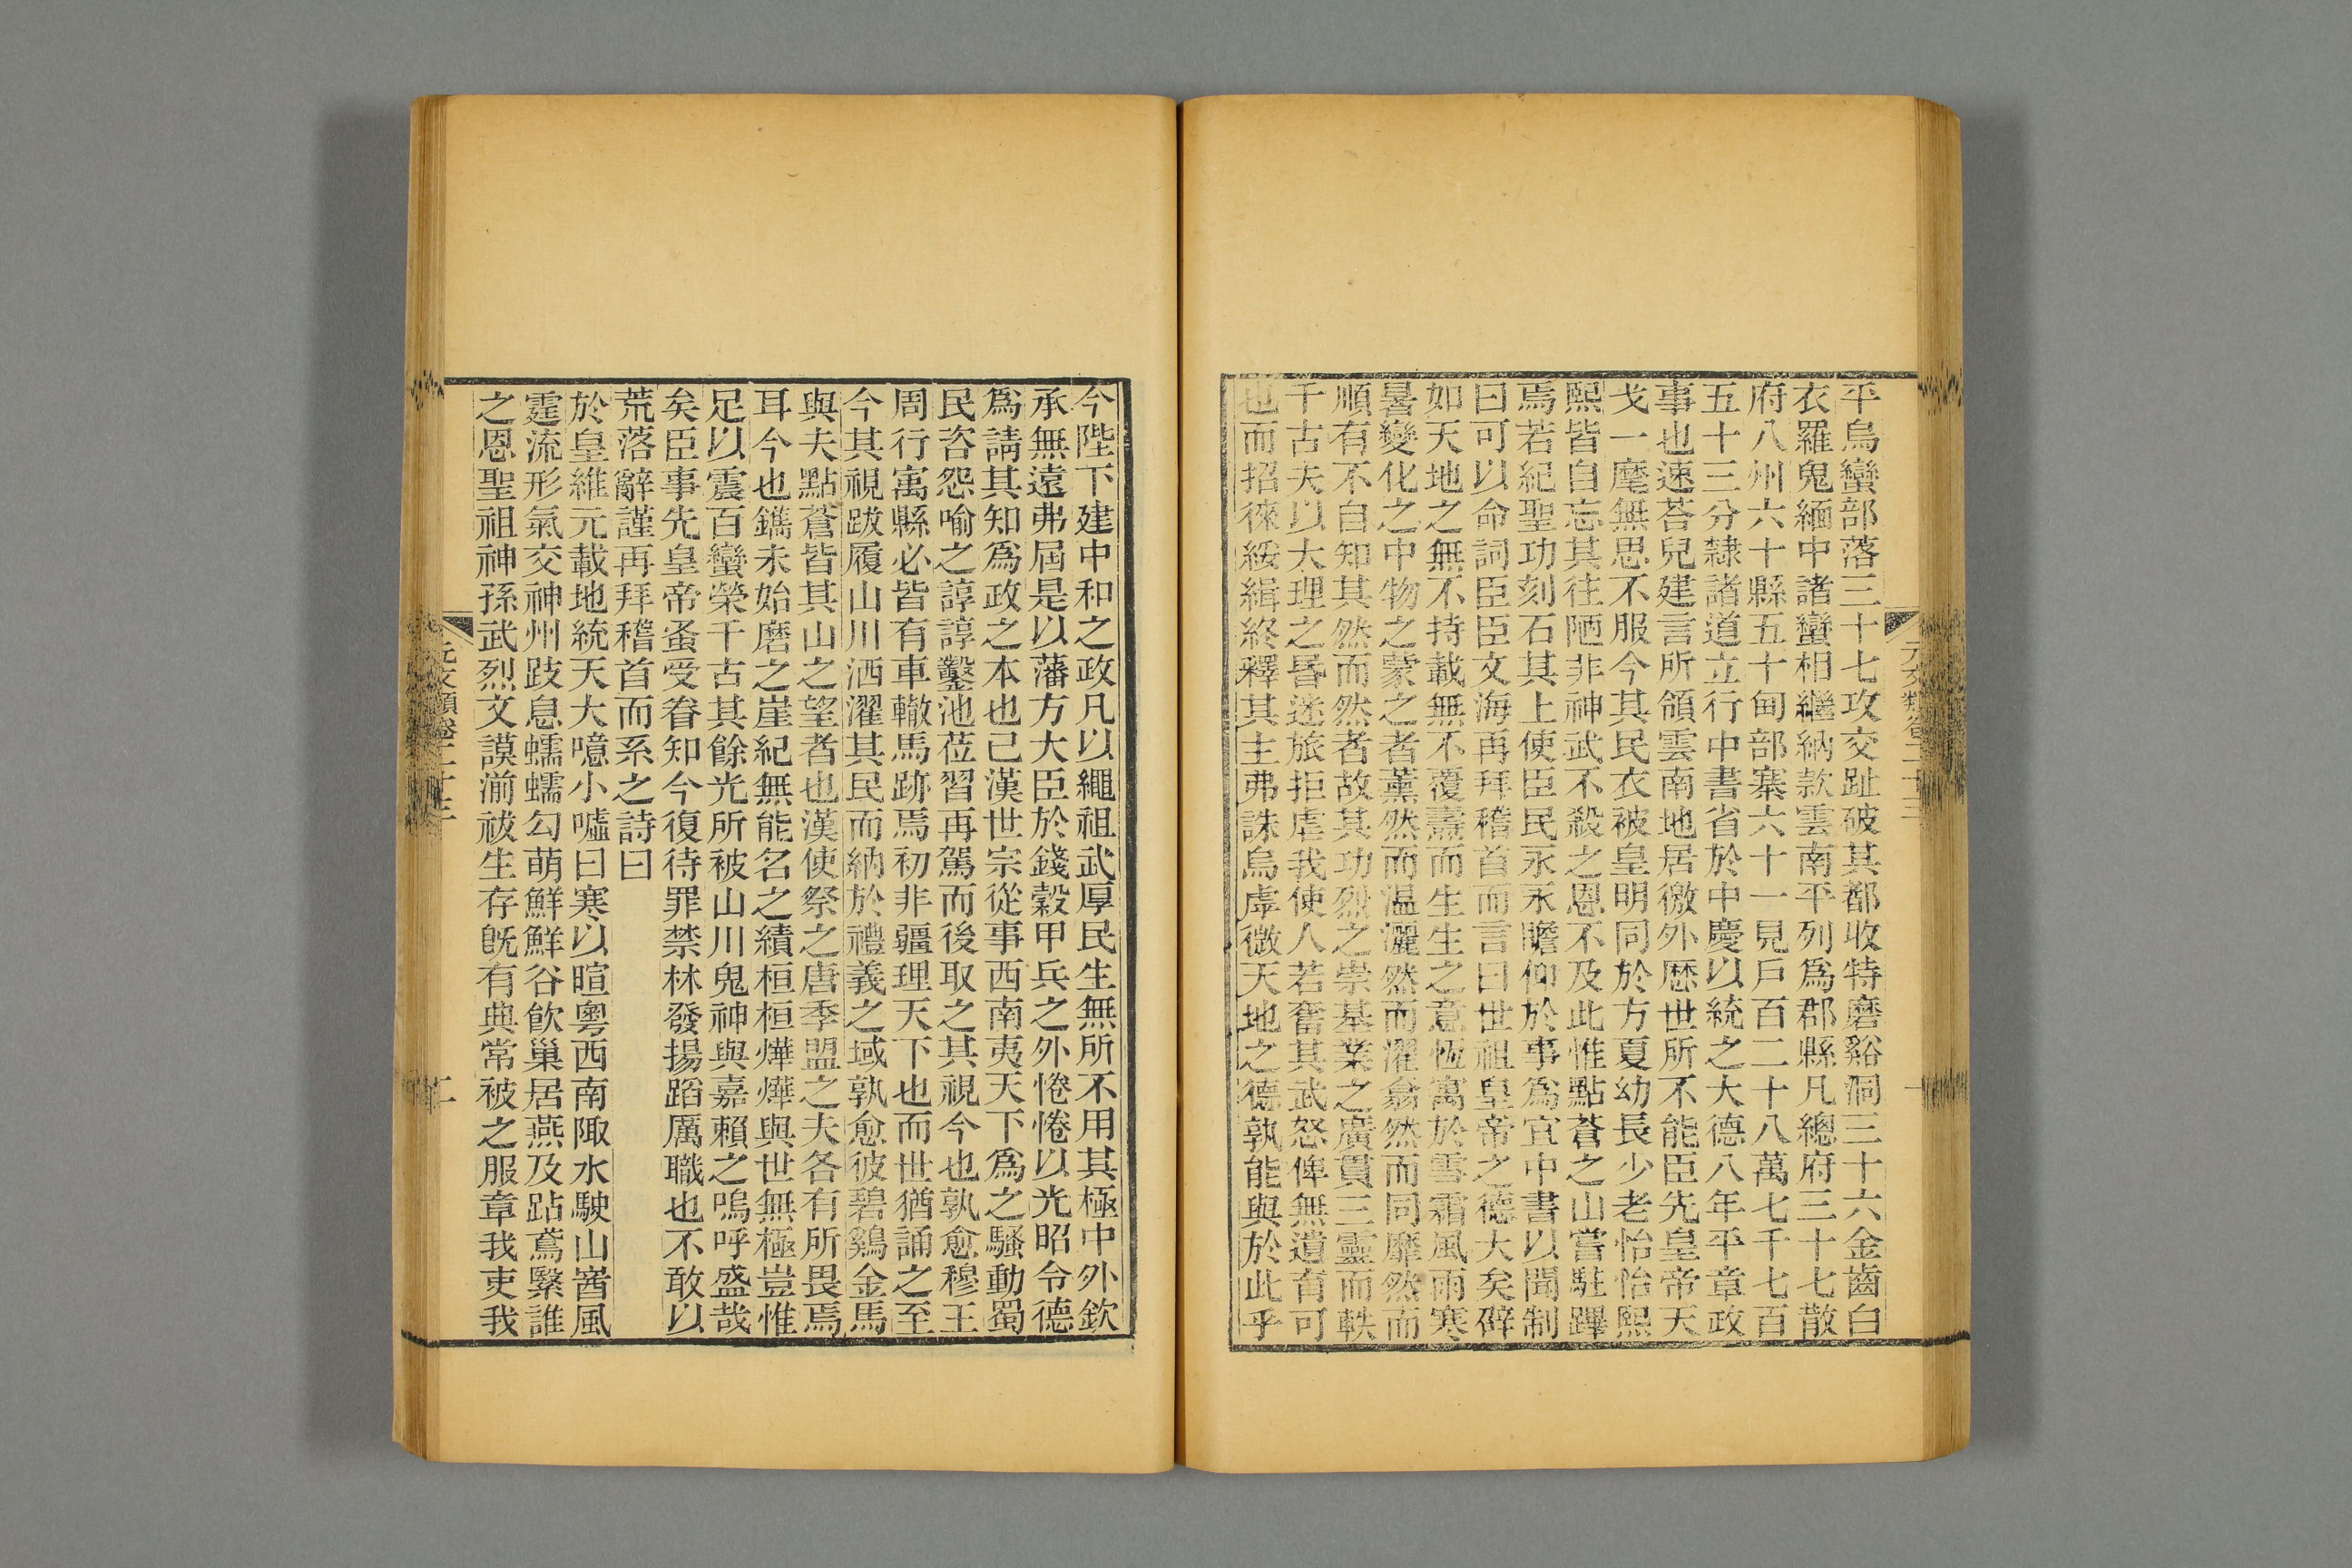 平烏蠻部落三十七攻交趾破其都收特磨谿洞三十六金齒白
衣羅鬼緬中諸蠻相繼納款雲南平列爲郡縣凡總府三十七散
府八州六十縣五十甸部寨六十一見戶百二十八萬七千七百
五十三分隸諸道立行中書省於中慶以統之大德八年平章政
事也速荅兒建言所領雲南地居徼外歷世所不能臣先皇帝天
戈一麾無思不服今其民衣被皇明同於方夏幼長少老怡怡熙
熙皆自忘其往陋非神武不殺之恩不及此惟點蒼之山嘗駐蹕
焉若紀聖功刻石其上使臣民永永瞻仰於事爲宜中書以聞制
曰可以命詞臣臣文海再拜稽首而言曰世祖皇帝之德大矣礕
如天地之無不持載無不覆燾而生生之意恆寓於雪霜風雨寒
暑變化之中物之蒙之者薰然而温灑然而濯翕然而同靡然而
順有不自知其然而然者故其功烈之崇基業之廣貫三靈而軼
千古夫以大理之昬迷旅拒虐我使人若奮其武怒俾無遺育可
也而招徠綏緝終釋其主弗誅烏虖微天地之德孰能與於此乎
元文類卷二十三
一
今陛下建中和之政凡以繩祖武厚民生無所不用其極中外欽
承無遠弗屆是以藩方大臣於錢穀甲兵之外惓惓以光昭令德
爲請其知爲政之本也已漢世宗從事西南夷天下爲之騷動蜀
民咨怨喻之諄諄鑿池莅習再駕而後取之其視今也孰愈穆王
周行寓縣必皆有車轍馬跡焉初非疆理天下也而世猶誦之至
今其視跋履山川洒濯其民而納於禮義之域孰愈彼碧鷄金馬
與夫點蒼皆其山之望者也漢使祭之唐季盟之夫各有所畏焉
耳今也鐫未始磨之崖紀無能名之績桓桓燁燁與世無極豈惟
足以震百蠻榮千古其餘光所被山川鬼神與嘉賴之嗚呼盛哉
矣臣事先皇帝蚤受眷知今復待罪禁林發揚蹈厲職也不敢以
荒落辭謹再拜稽首而系之詩曰
於皇維元載地統天大噫小噓曰寒以暄粵西南陬水駛山嶜風
霆流形氣交神州跂息蠕蠕勾萌鮮鮮谷飲巢居燕及跕鳶繄誰
之恩聖祖神孫武烈文謨湔祓生存旣有典常被之服章我吏我
元文類卷二十三
二